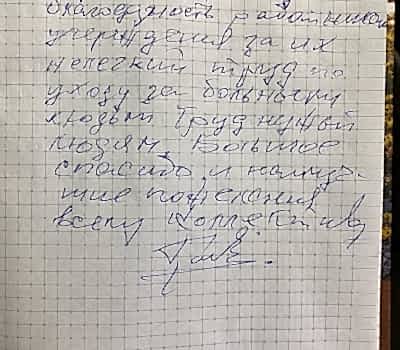 благодарность работникам
учреждения за их
нелегкий труд по
уходу за больными
людьми. Труд нужный
людям. Большое
спасибо и наилуч-
шие пожелания
всему коллективу